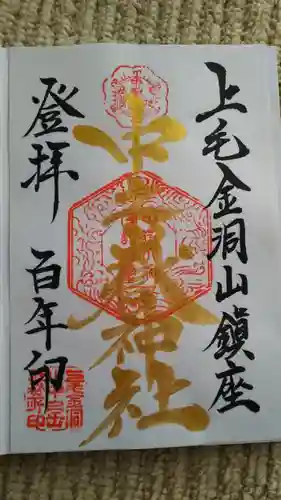 上毛金洞山鎮座
中之嶽神社
登拝 百年印